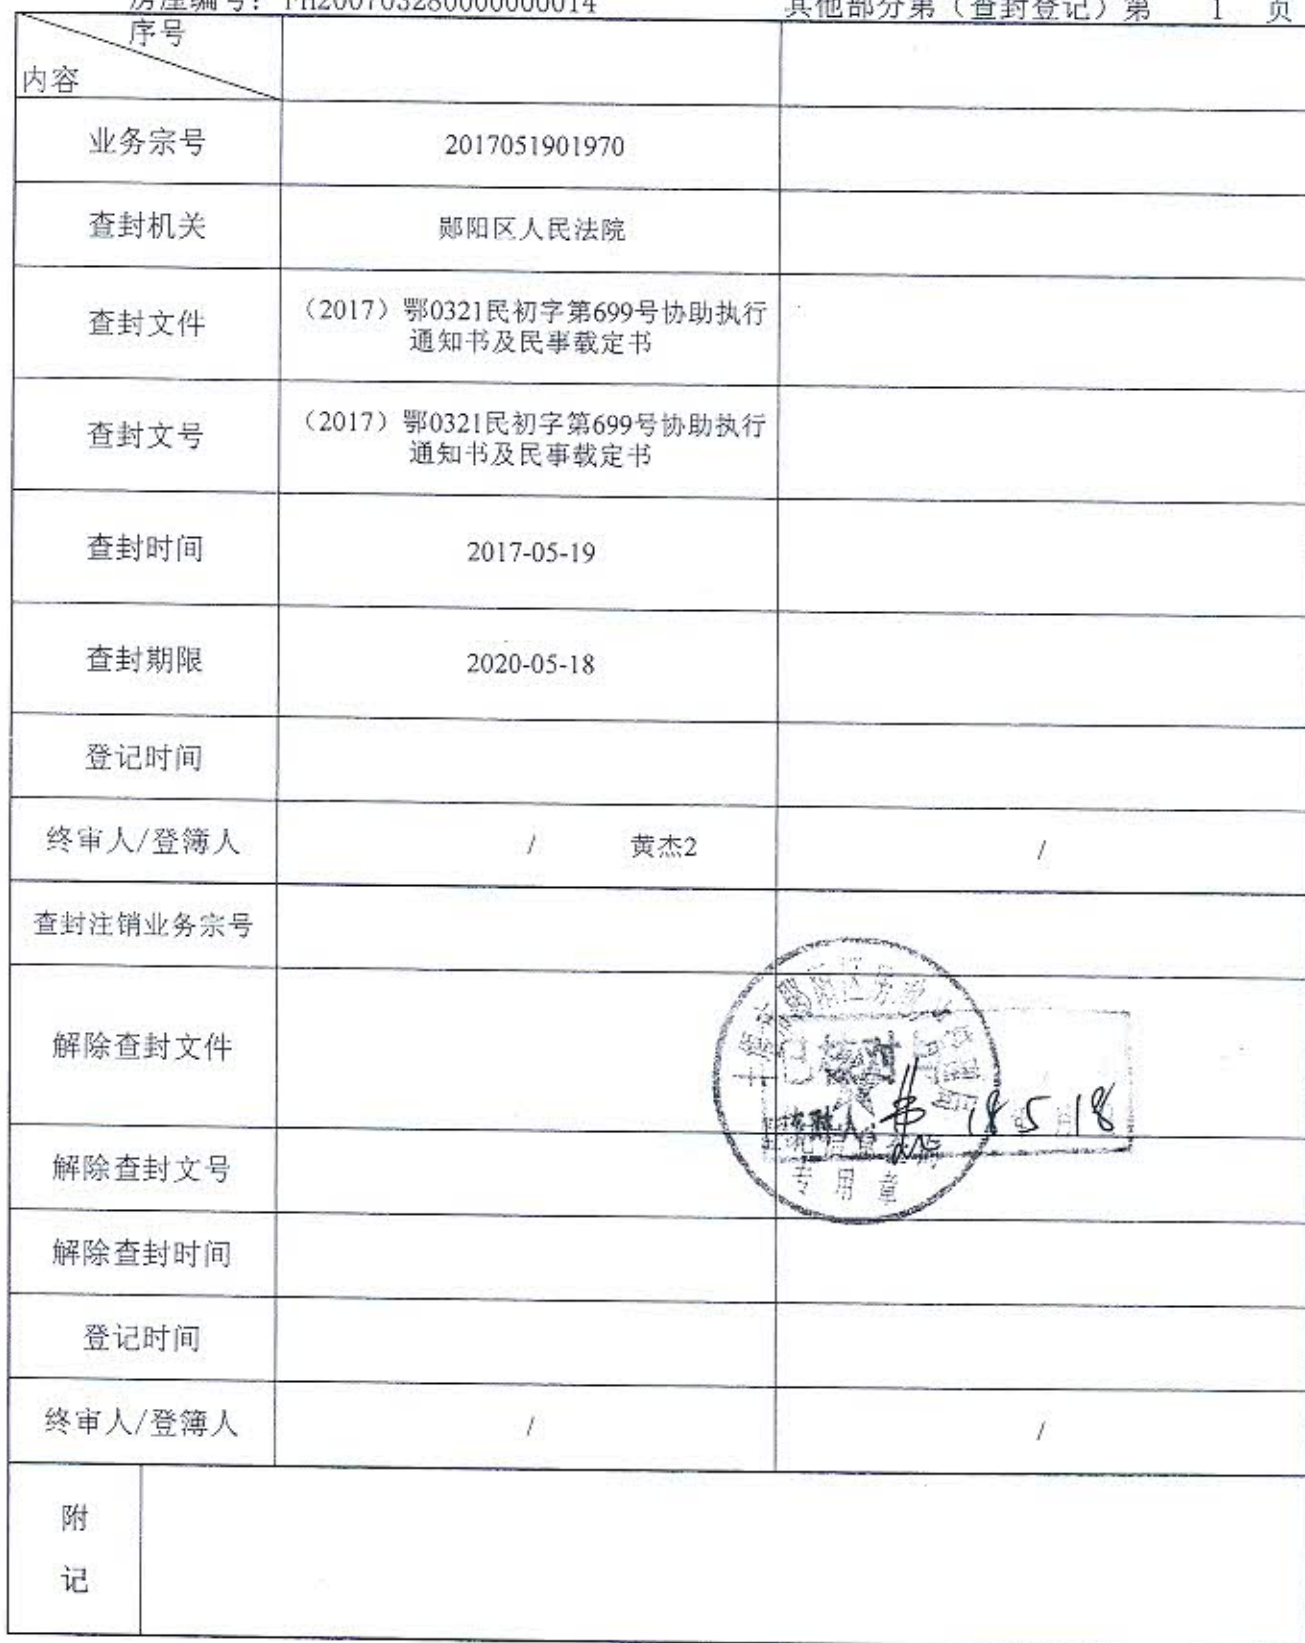 房屋编号: FH200703280000000014 其他部分第（查封登记）第 1 页
序号
内容
业务宗号 2017051901970
查封机关 郧阳区人民法院
查封文件 （2017）鄂0321民初字第699号协助执行
通知书及民事载定书
查封文号 （2017）鄂0321民初字第699号协助执行
通知书及民事载定书
查封时间 2017-05-19
查封期限 2020-05-18
登记时间
终审人/登簿人 / 黄杰2 /
查封注销业务宗号
解除查封文件
18 5 18
解除查封文号
专用章
解除查封时间
登记时间
终审人/登簿人 / /
附
记